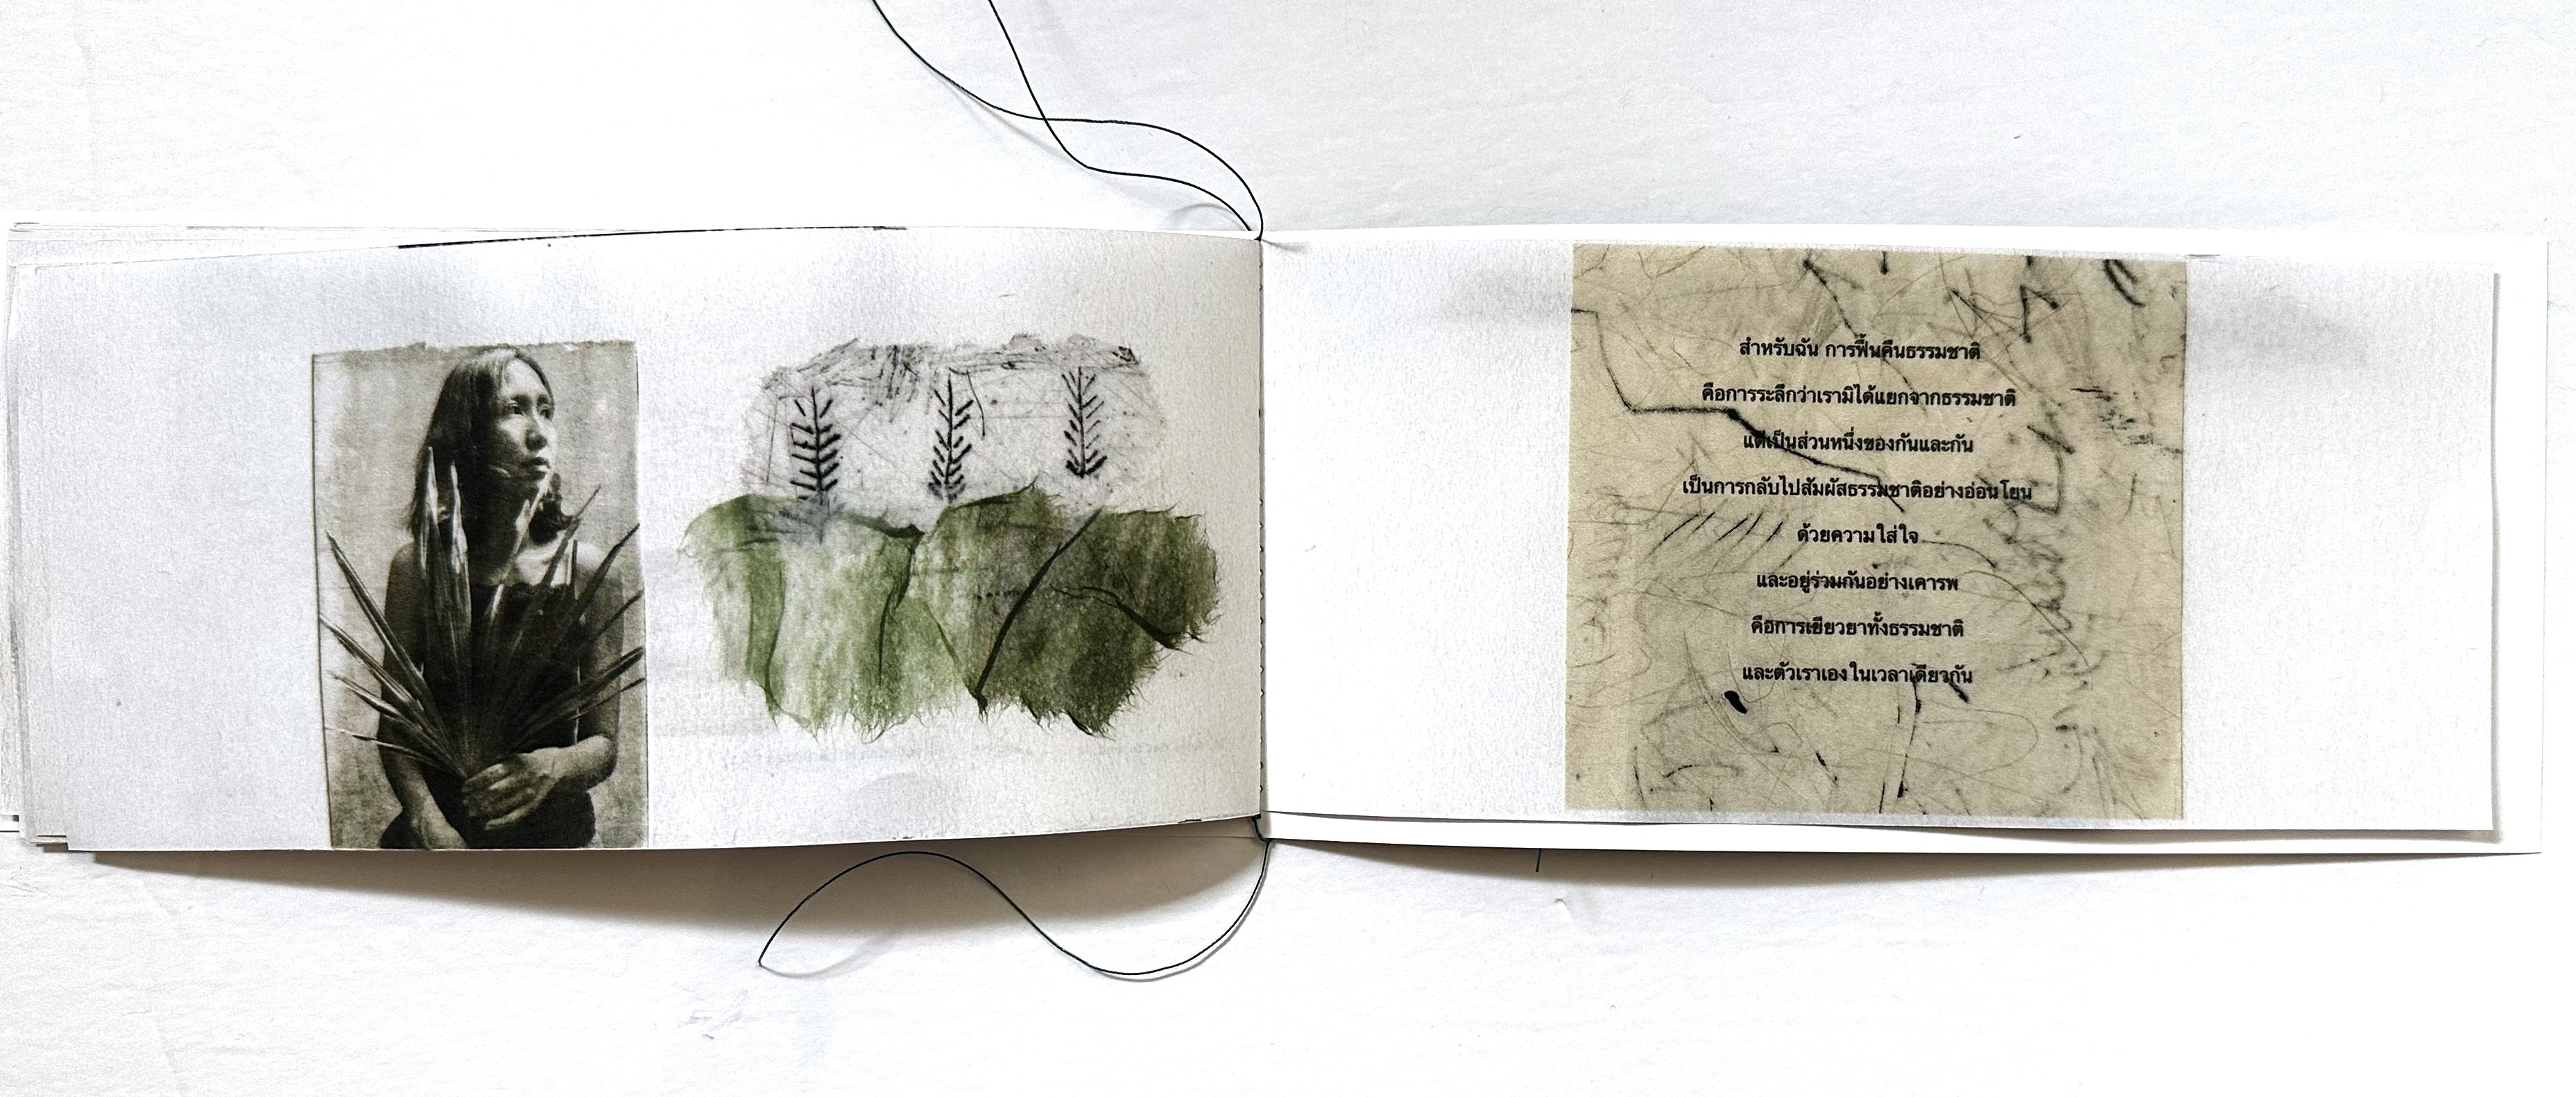 สำหรับฉัน การฟื้นคืนธรรมชาติ
คือการระลึกว่าเรามิได้แยกจากธรรมชาติ
แต่เป็นส่วนหนึ่งของกันและกัน
เป็นการกลับไปสัมผัสธรรมชาติอย่างอ่อนโยน
ด้วยความใส่ใจ
และอยู่ร่วมกันอย่างเคารพ
คือการเยียวยาทั้งธรรมชาติ
และตัวเราเองในเวลาเดียวกัน